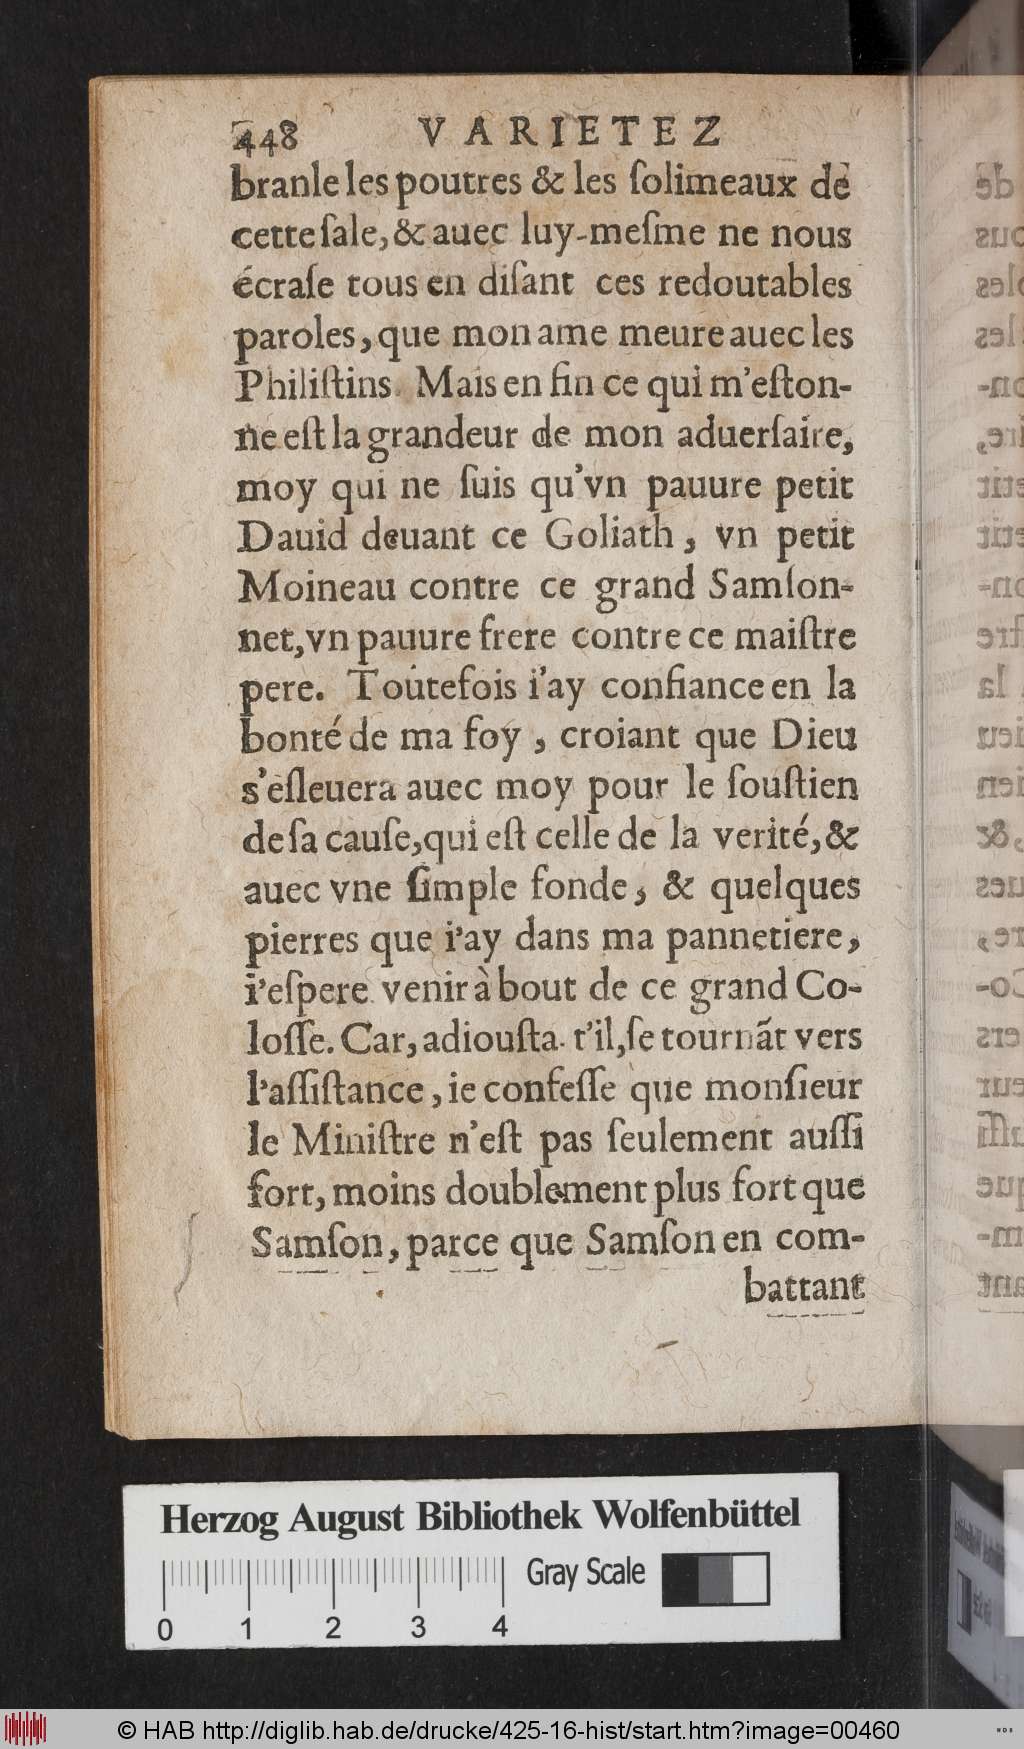 448 VARIETEZ
branle les poutres & les ſolimeaux de
cette ſale, & auec luy-meſme ne nous
écraſe tous en diſant ces redoutables
paroles, que mon ame meure auec les
Philiſtins. Mais en fin ce qui m'eſton-
ne eſt la grandeur de mon aduerſaire,
moy qui ne ſuis qu'vn pauure petit
Dauid deuant ce Goliath, vn petit
Moineau contre ce grand Samſon-
net, vn pauure frere contre ce maiſtre
pere. Toutefois i'ay confiance en la
bonté de ma foy, croiant que Dieu
s'eſleuera auec moy pour le ſouſtien
de ſa cauſe, qui eſt celle de la verité, &
auec vne ſimple fonde, & quelques
pierres que i'ay dans ma pannetiere,
i'eſpere venir à bout de ce grand Co-
loſſe. Car, adiouſta-t'il, ſe tournãt vers
l'aſſiſtance, ie confeſſe que monſieur
le Miniſtre n'eſt pas ſeulement auſſi
fort, moins doublement plus fort que
Samſon, parce que Samſon en com-
battant
Herzog August Bibliothek Wolfenbüttel
Gray Scale
0 1 2 3 4
© HAB http://diglib.hab.de/drucke/425-16-hist/start.htm?image=00460